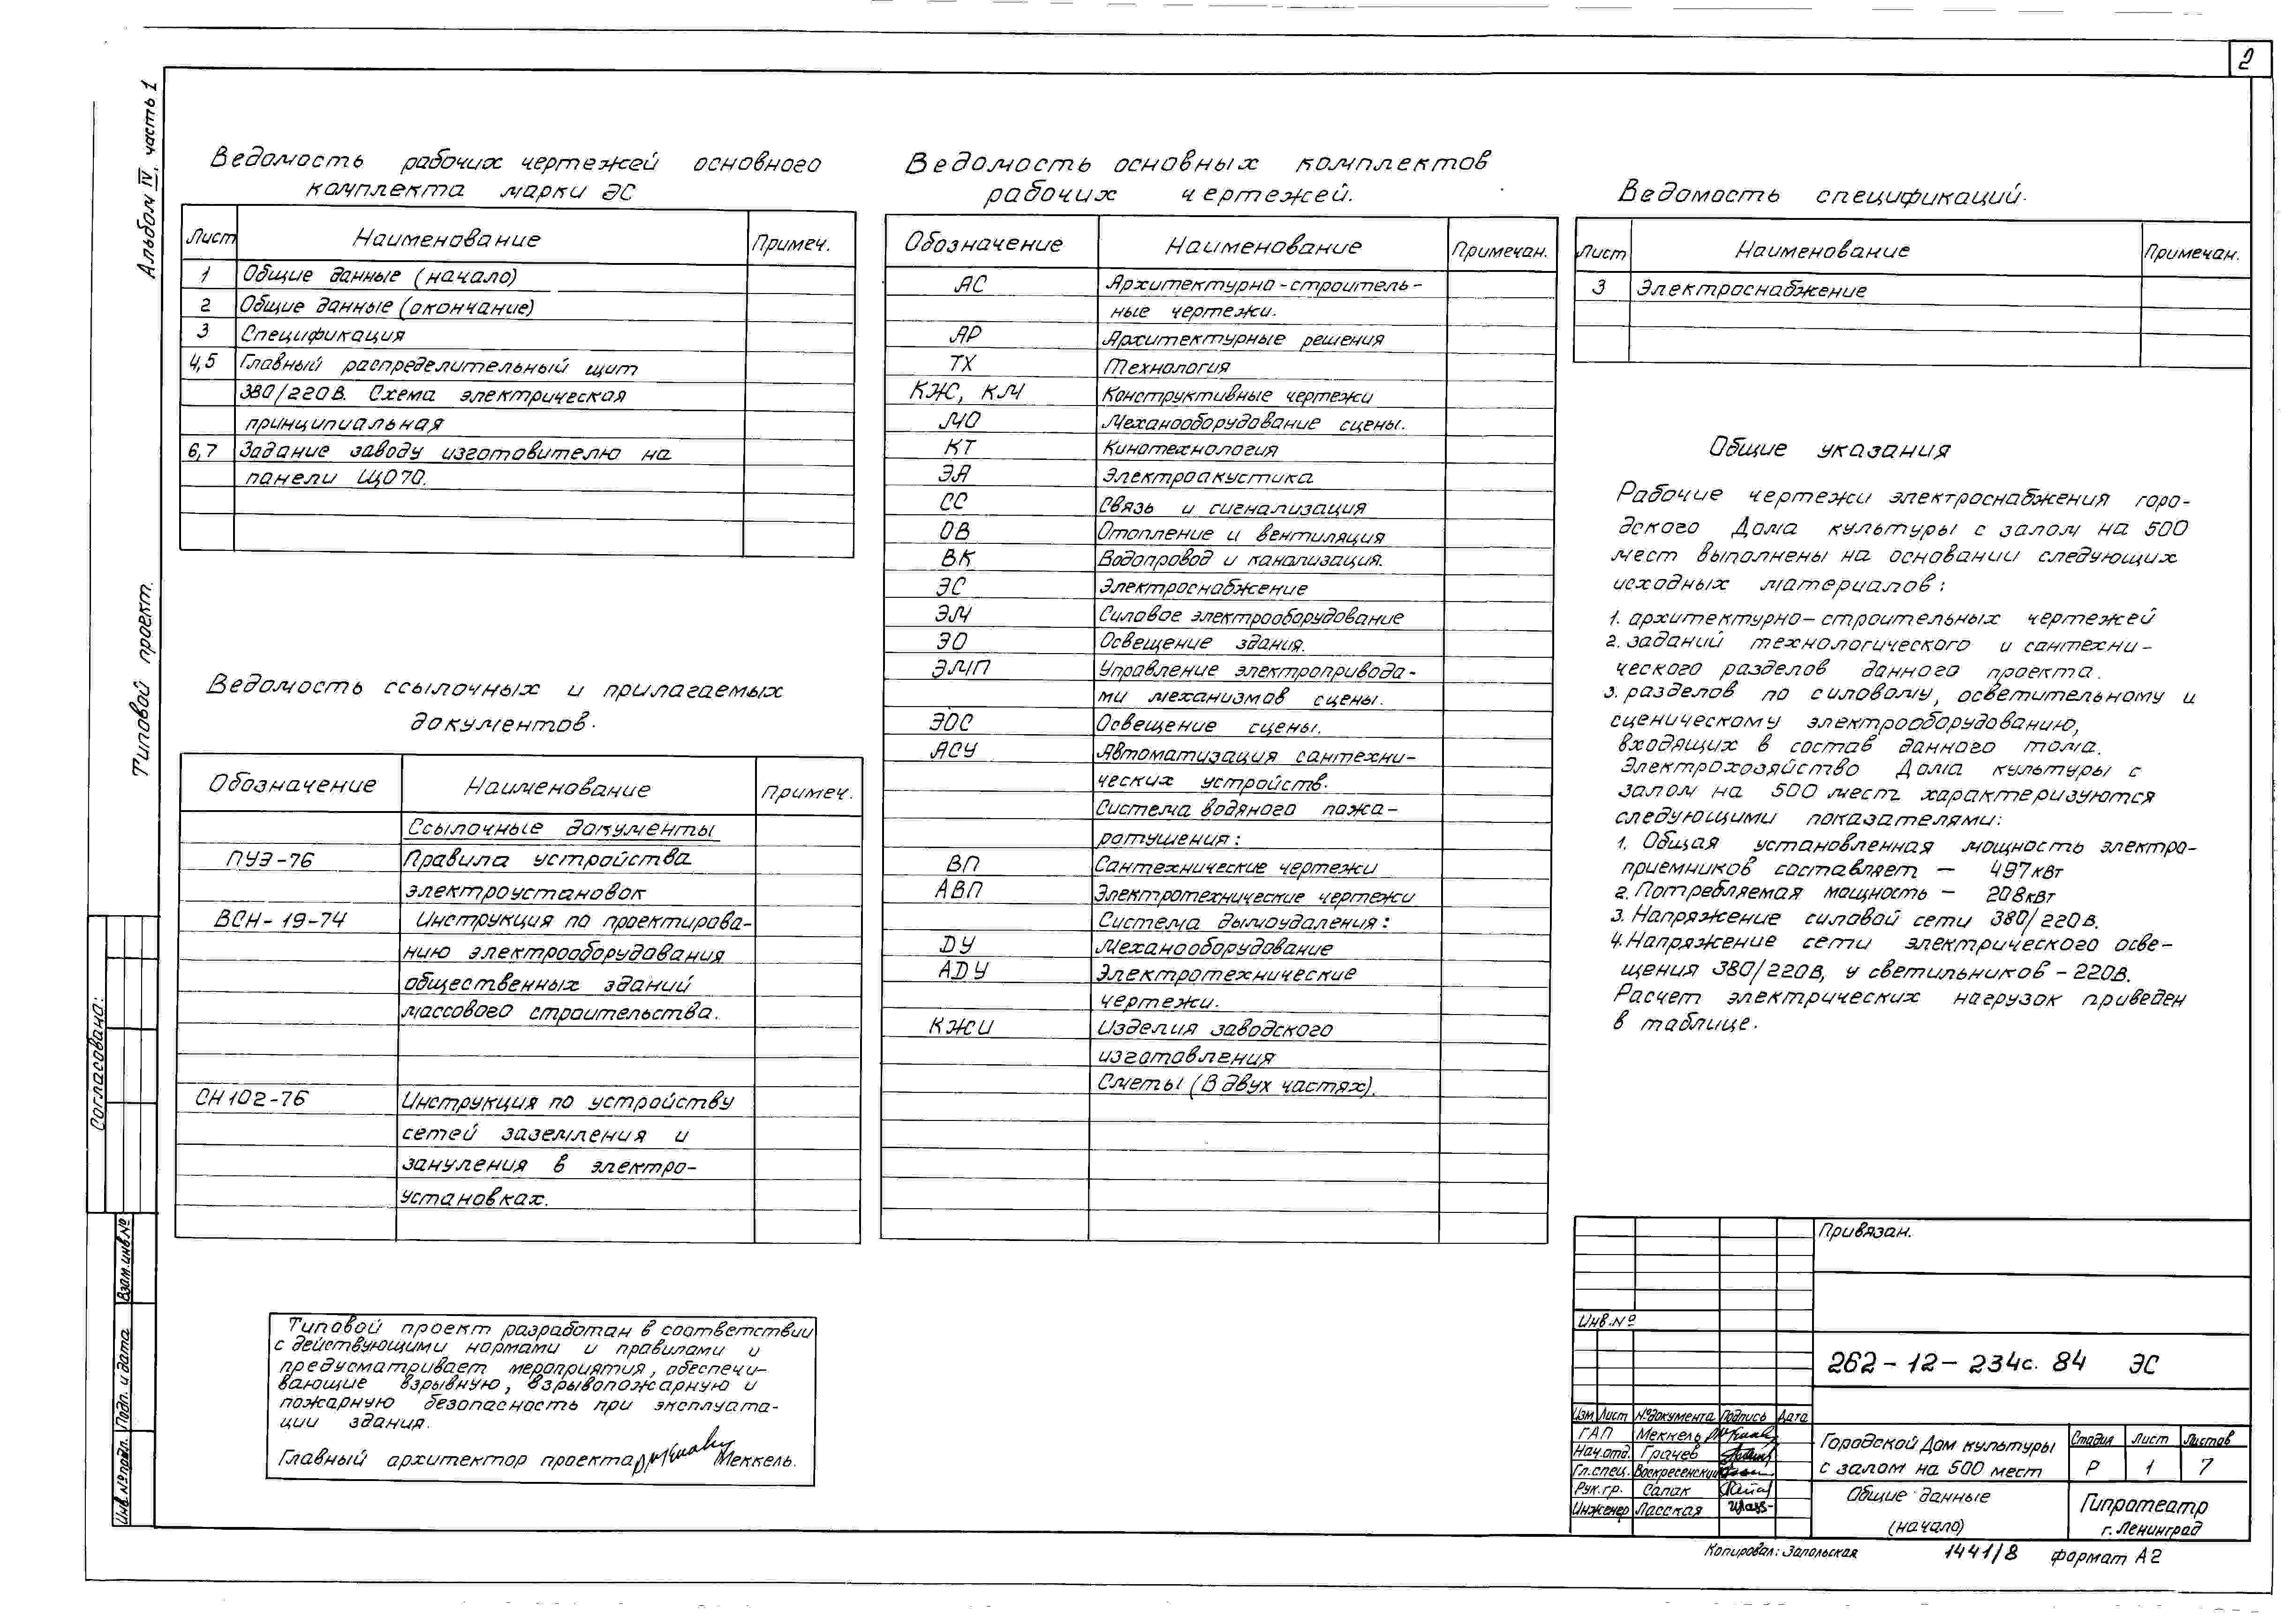 2
Альбом IV, часть 1
Типовой проект.
Согласовано:
Взам.инв.№
Подп. и дата
Инв.№подл.
Ведомость рабочих чертежей основного
комплекта марки ЭС
Лист Наименование Примеч.
1 Общие данные (начало)
2 Общие данные (окончание)
3 Спецификация
4,5 Главный распределительный щит
380/220В. Схема электрическая
принципиальная
6,7 Задание заводу изготовителю на
панели ЩО70.
Ведомость ссылочных и прилагаемых
документов.
Обозначение Наименование Примеч.
Ссылочные документы
ПУЭ-76 Правила устройства
электроустановок
ВСН-19-74 Инструкция по проектирова-
нию электрооборудования
общественных зданий
массового строительства.
СН102-76 Инструкция по устройству
сетей заземления и
зануления в электро-
установках.
Типовой проект разработан в соответствии
с действующими нормами и правилами и
предусматривает мероприятия, обеспечи-
вающие взрывную, взрывопожарную и
пожарную безопасность при эксплуата-
ции здания.
Главный архитектор проекта Меккель.
Ведомость основных комплектов
рабочих чертежей.
Обозначение Наименование Примечан.
АС Архитектурно-строитель-
ные чертежи.
АР Архитектурные решения
ТХ Технология
КЖ, КМ Конструктивные чертежи
МО Механооборудование сцены.
КТ Кинотехнология
ЭА Электроакустика
СС Связь и сигнализация
ОВ Отопление и вентиляция
ВК Водопровод и канализация.
ЭС Электроснабжение
ЭМ Силовое электрооборудование
ЭО Освещение здания.
ЭМП Управление электропривода-
ми механизмов сцены.
ЭОС Освещение сцены.
АСУ Автоматизация сантехни-
ческих устройств.
Система водяного пожа-
ротушения:
ВП Сантехнические чертежи
АВП Электротехнические чертежи
Система дымоудаления:
ДУ Механооборудование
АДУ Электротехнические
чертежи.
КЖИ Изделия заводского
изготовления
Сметы (В двух частях).
Ведомость спецификаций.
Лист Наименование Примечан.
3 Электроснабжение
Общие указания
Рабочие чертежи электроснабжения горо-
дского Дома культуры с залом на 500
мест выполнены на основании следующих
исходных материалов:
1. архитектурно-строительных чертежей
2. заданий технологического и сантехни-
ческого разделов данного проекта.
3. разделов по силовому, осветительному и
сценическому электрооборудованию,
входящих в состав данного тома.
Электрохозяйство Дома культуры с
залом на 500 мест характеризуются
следующими показателями:
1. Общая установленная мощность электро-
приемников составляет — 497кВт
2. Потребляемая мощность — 208кВт
3. Напряжение силовой сети 380/220В.
4. Напряжение сети электрического осве-
щения 380/220В, у светильников-220В.
Расчет электрических нагрузок приведен
в таблице.
Привязан.
Инв.№
262-12-234с.84 ЭС
Изм Лист №документа Подпись Дата
ГАП Меккель
Нач.отд. Грачев
Гл.спец. Воскресенский
Рук.гр. Сапак
Инженер Ласская
Городской Дом культуры
с залом на 500 мест
Стадия Лист Листов
Р 1 7
Общие данные
(начало)
Гипротеатр
г. Ленинград
Копировал: Запольская 1441/8 формат А2